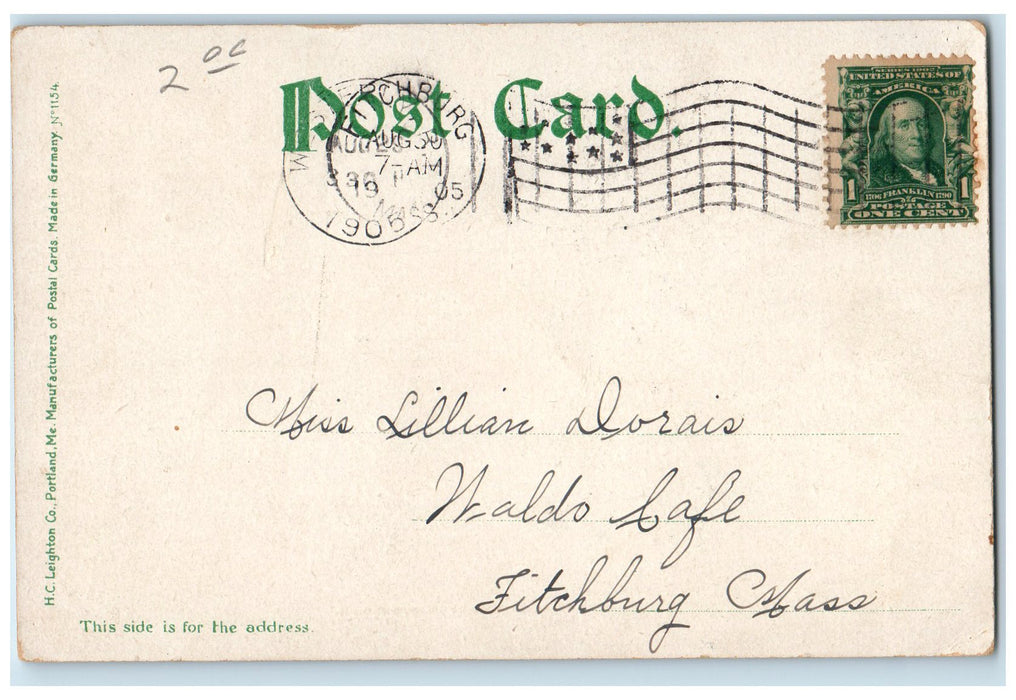 2 00
Post Card.
FITCHBURG
AUG 30
7-AM
05
MASS.
1905
SERIES 1902
UNITED STATES OF
AMERICA
1 1706 FRANKLIN 1790 1
POSTAGE
ONE CENT
H.C. Leighton Co., Portland, Me. Manufacturers of Postal Cards. Made in Germany. Nº 1154.
Miss Lillian Dorais
Waldo Cafe
Fitchburg Mass
This side is for the address.